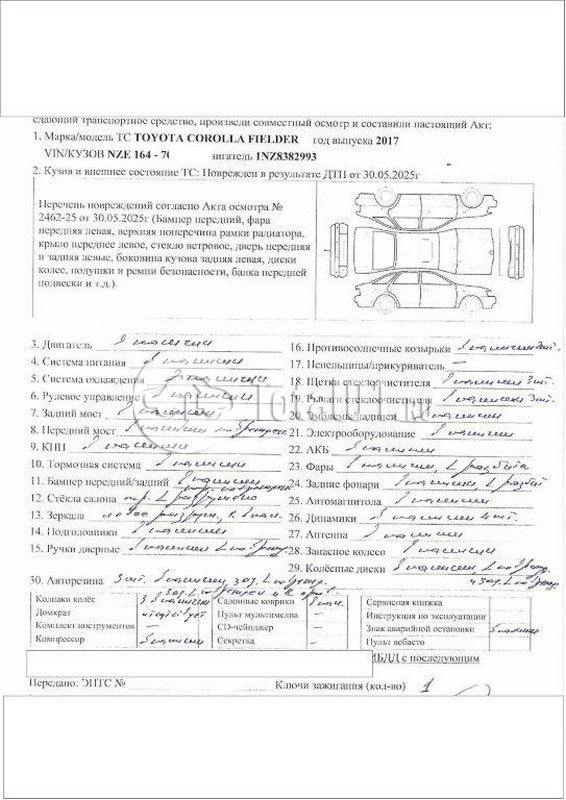 сдающий транспортное средство, произвели совместный осмотр и составили настоящий Акт:
1. Марка/модель ТС TOYOTA COROLLA FIELDER год выпуска 2017
VIN/КУЗОВ NZE 164 - 7 вигатель 1NZ8382993
2. Кузов и внешнее состояние ТС: Поврежден в результате ДТП от 30.05.2025г
Перечень повреждений согласно Акта осмотра №
2462-25 от 30.05.2025г (Бампер передний, фара
передняя левая, верхняя поперечина рамки радиатора,
крыло переднее левое, стекло ветровое, дверь передняя
и задняя левые, боковина кузова задняя левая, диски
колес, подушки и ремни безопасности, балка передней
подвески и т.д.).
3. Двигатель В наличии
4. Система питания В наличии
5. Система охлаждения В наличии
6. Рулевое управление В наличии
7. Задний мост В наличии
8. Передний мост В наличии
9. КПП В наличии
10. Тормозная система В наличии
11. Бампер передний/задний В наличии
12. Стёкла салона
13. Зеркала
14. Подголовники В наличии
15. Ручки дверные В наличии
16. Противосолнечные козырьки В наличии 2шт.
17. Пепельницы/прикуриватель –
18. Щетки стеклоочистителя В наличии 3 шт.
19. Рычаги стеклоочистителя В наличии 3шт.
20. Эмблемы/молдинги В наличии
21. Электрооборудование В наличии
22. АКБ В наличии
23. Фары В наличии, L разбита
24. Задние фонари В наличии, L разбит
25. Автомагнитола В наличии
26. Динамики В наличии 4шт.
27. Антенна В наличии
28. Запасное колесо В наличии
29. Колёсные диски В наличии
30. Авторезина
Колпаки колёс
Домкрат отсутствует
Комплект инструментов –
Компрессор В наличии
Салонные коврики
Пульт мультимедиа –
CD-чейнджер –
Секретка –
Сервисная книжка –
Инструкция по эксплуатации –
Знак аварийной остановки В наличии
Пульт вебасто –
ИБДД с последующим
Передано: ЭПТС №
Ключи зажигания (кол-во) 1